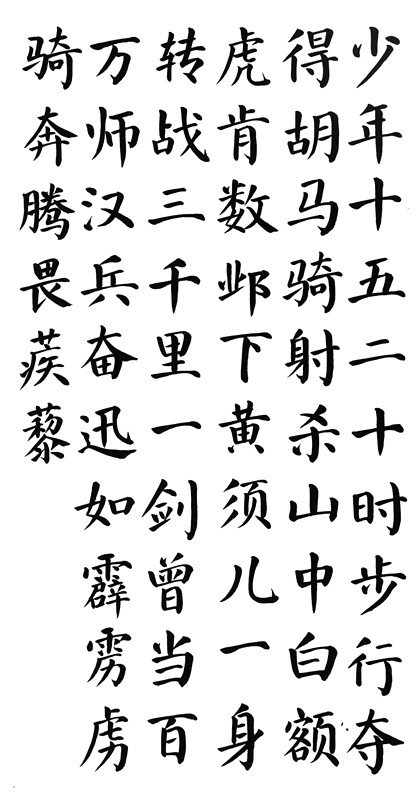 少年十五二十时步行夺
得胡马骑射杀山中白额
虎肯数邺下黄须儿一身
转战三千里一剑曾当百
万师汉兵奋迅如霹雳虏
骑奔腾畏蒺藜